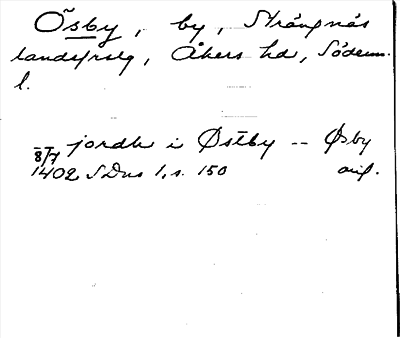 Ösby, by, Strängnäs
landsfrslg, Åkers hd, Söderm.
l.
8/7 jordh i Østby -- Øsby
1402 SDns 1, s. 150